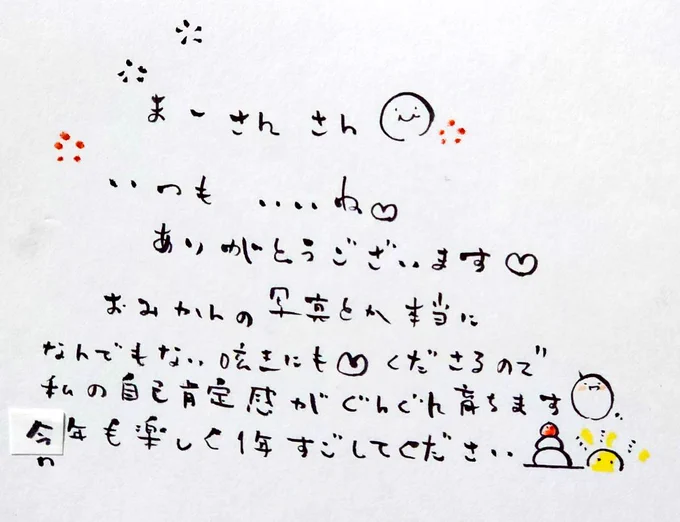 まーさん さん
いつも いいね♡
ありがとうございます♡
おみかんの写真とか本当に
なんでもない呟きにも♡くださるので
私の自己肯定感がぐんぐん育ちます
今年も楽しく1年すごしてください